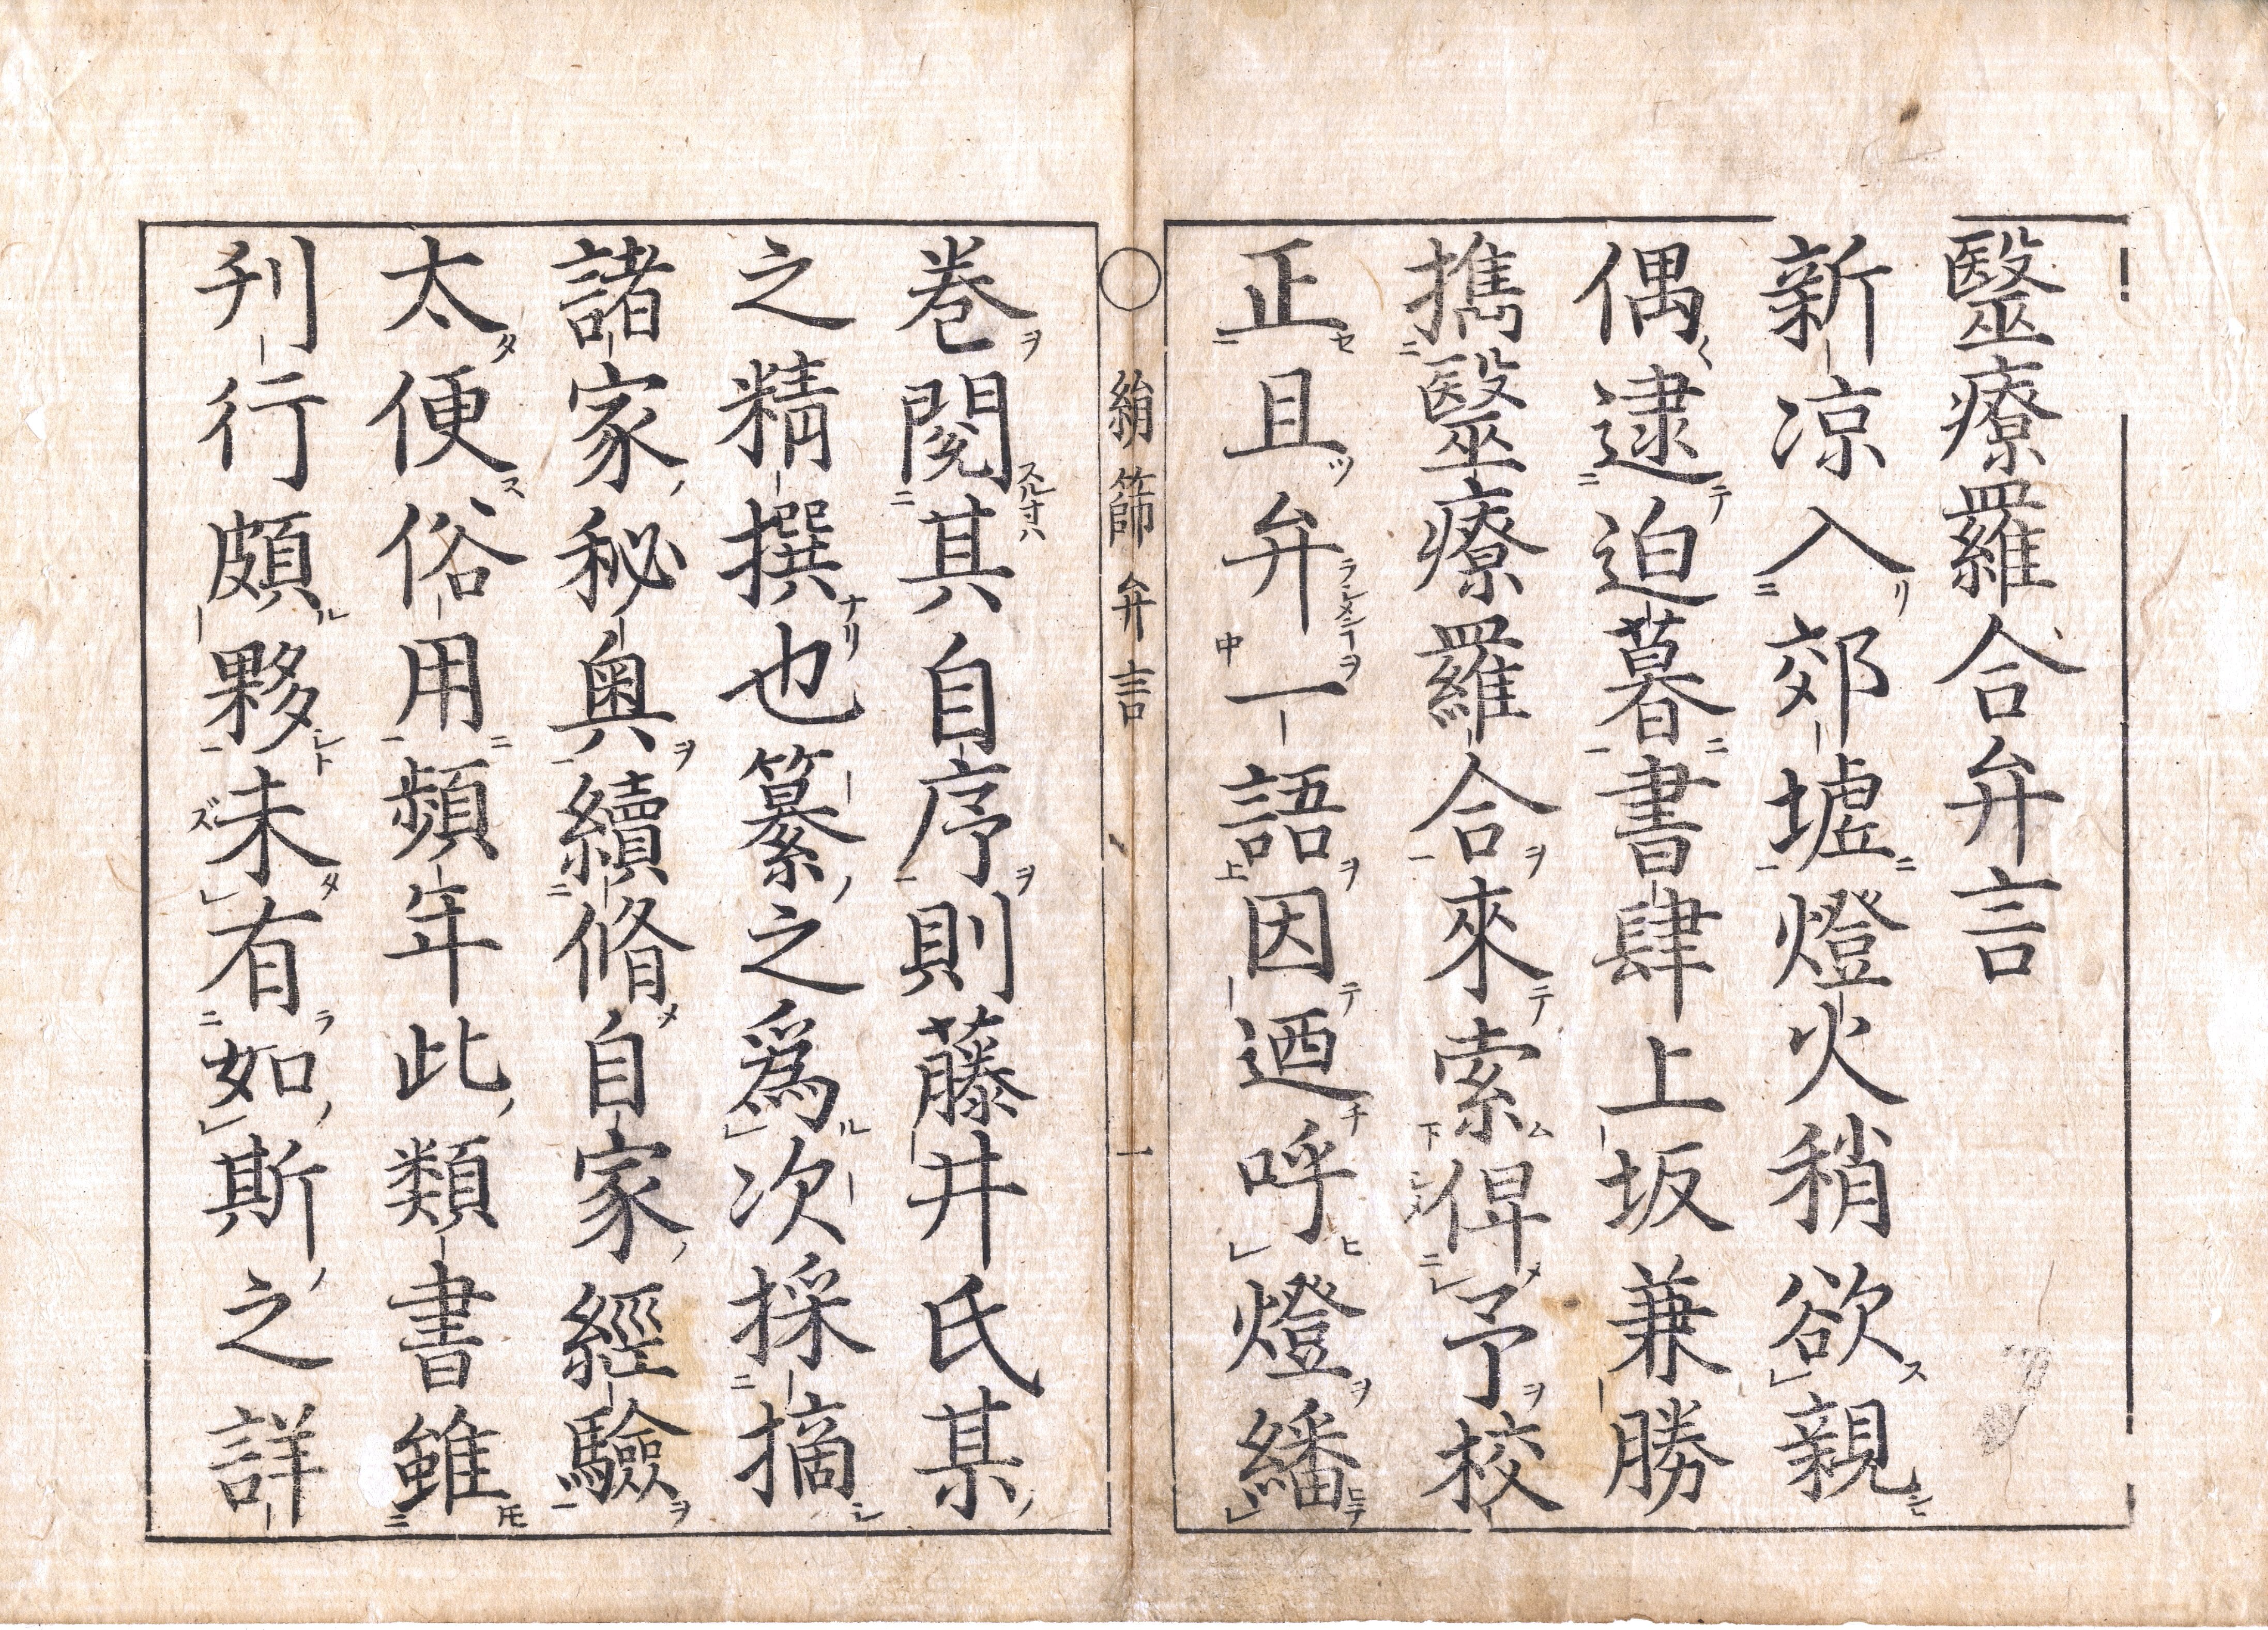 毉療羅合弁言
新凉入郊墟燈火稍欲親
偶逮迫暮書肆上坂兼勝
携毉療羅合來索俾予校
正且弁一語因迺呼燈繙
絹篩弁言 一
巻閱其自序則藤井氏某
之精撰也纂之爲次採摘
諸家秘奥續脩自家經驗
太便俗用頻年此類書雖
刋行頗夥未有如斯之詳